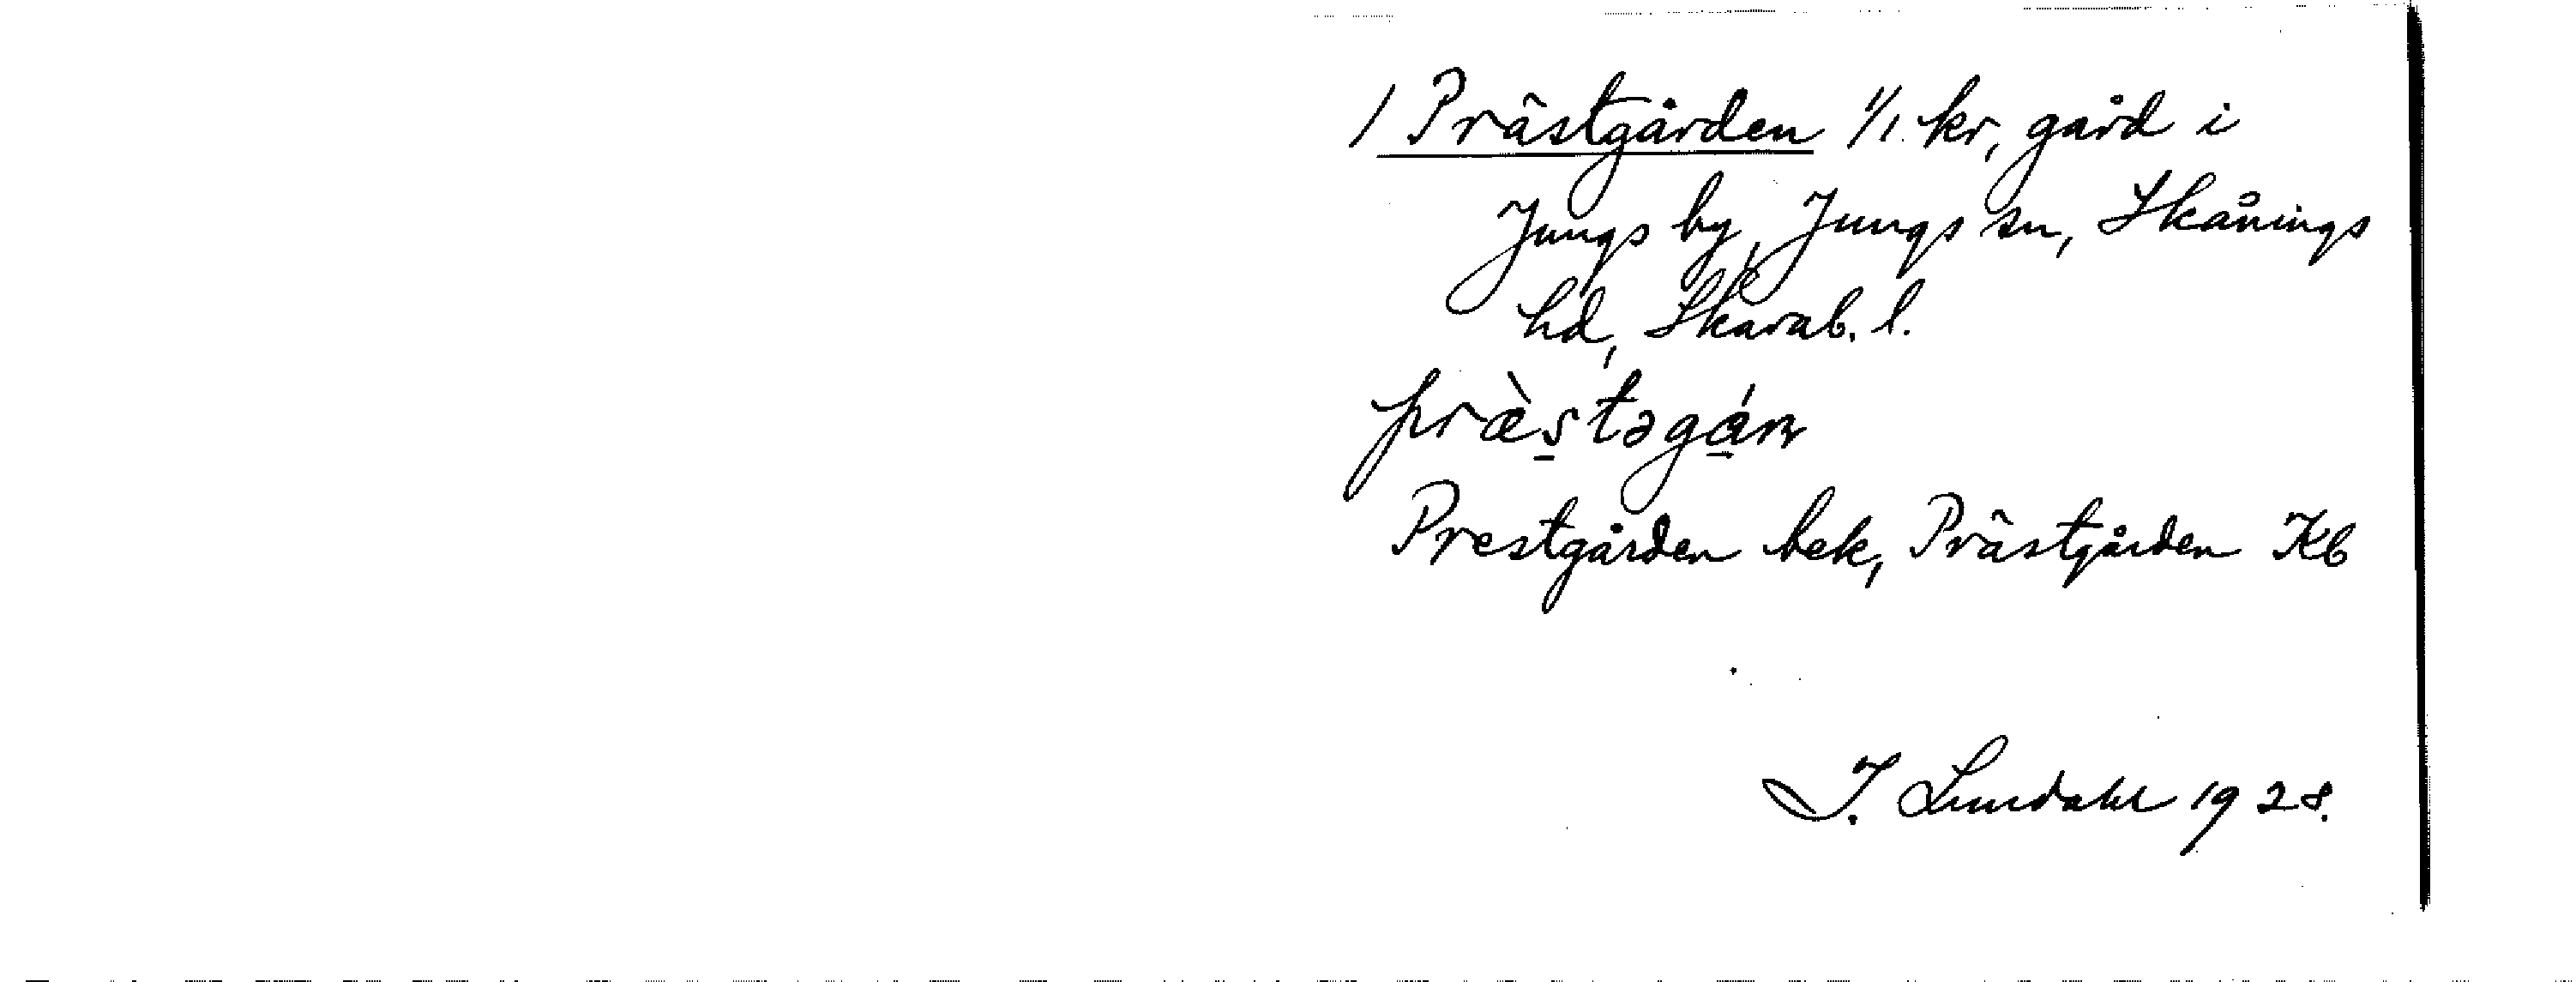 / Prästgården 1/1 kr, gård i
Jungs by, Jungs sn, Skånings
hd, Skarab. l.
præ̀stəgán
Prestgården bek, Prästgården Kb
I. Lundahl 1928.